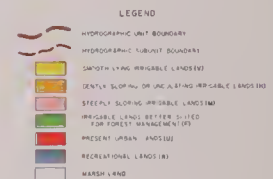 LEGEND
HYDROGRAPHIC UNIT BOUNDARY
HYDROGRAPHIC SUBUNIT BOUNDARY
SMOOTH LYING IRRIGABLE LANDS (V)
GENTLY SLOPING OR UNDULATING IRRIGABLE LANDS (H)
STEEPLY SLOPING IRRIGABLE LANDS (M)
IRRIGABLE LANDS BETTER SUITED
FOR FOREST MANAGEMENT (F)
PRESENT URBAN LANDS (U)
RECREATIONAL LANDS (R)
MARSH LAND